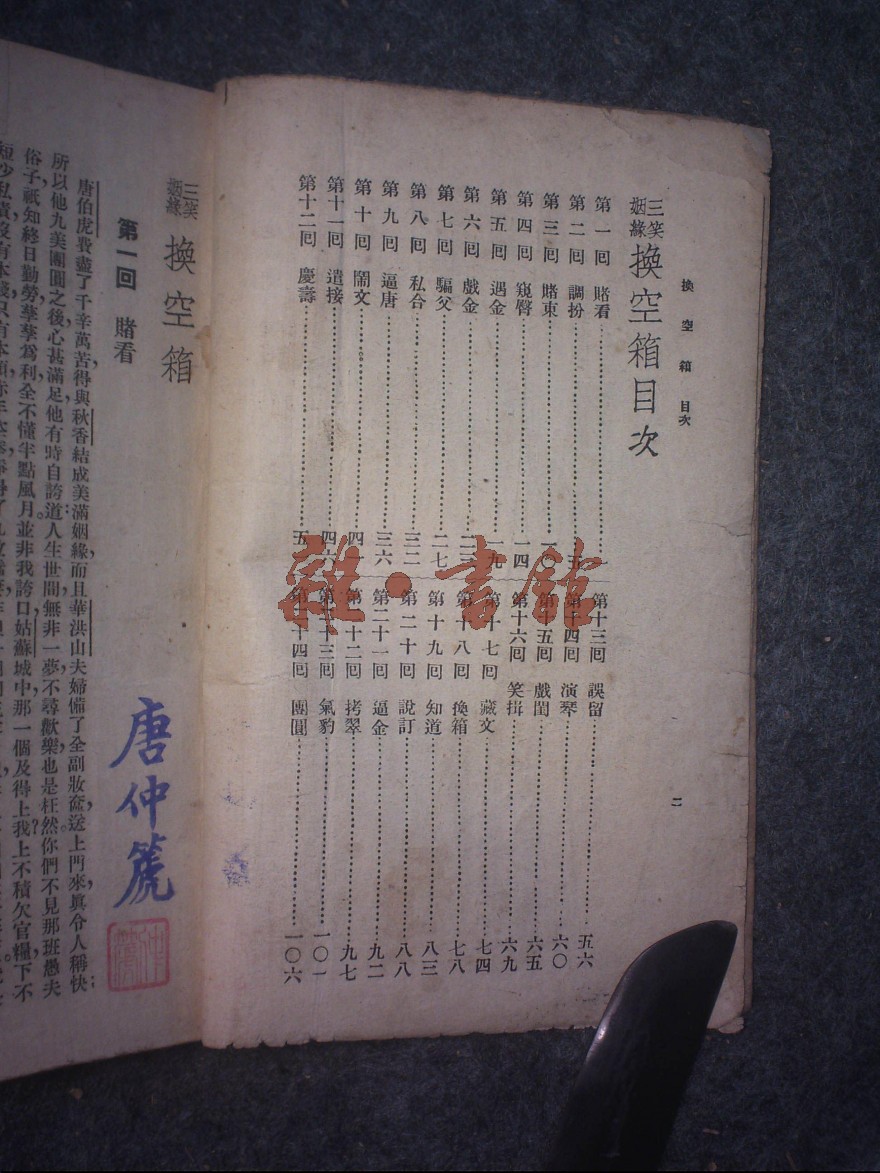 換空箱 目次
二
三笑姻緣 換空箱目次
第一回 賭看 一
第二回 調扮 五
第三回 賭東 一〇
第四回 窺臀 一四
第五回 遇金 一九
第六回 戲金 二三
第七回 騙父 二七
第八回 私合 三二
第九回 逼唐 三六
第十回 鬧文 四一
第十一回 遣接 四六
第十二回 慶壽 五
第十三回 誤留 五六
第十四回 演琴 六〇
第十五回 戲閨 六五
第十六回 笑揖 六九
第十七回 藏文 七四
第十八回 換箱 七八
第十九回 知道 八三
第二十回 說訂 八八
第二十一回 逼金 九二
第二十二回 拷翠 九七
第二十三回 氣豹 一〇一
第二十四回 團圓 一〇六
雜·書館
三笑姻緣 換空箱
第一回 賭看
唐仲篪
唐伯虎費盡了千辛萬苦,得與秋香結成美滿姻緣,而且華洪山夫婦備了全副妝奩,送上門來,眞令人稱快;
所以他九美團圓之後,心甚滿足,他有時自誇道:人生世間,無非一夢,不尋歡樂,也是枉然,你們不見那班愚夫
俗子,祇知終日勤勞,孳孳爲利,全不懂半點風月。並非我誇口,姑蘇城中,那一個及得上我?上不積欠官糧,下不